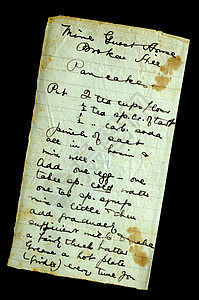 Mine Guest Home
Broken Hill
Pancakes
Put 2 tea cups flour
1/2 tea sp. C. of tart
1/4 " carb. soda
pinch of salt
all in a basin &
mix well.
Add one egg - one
table sp. cold water
one tab sp. syrup
mix a little &
add gradually
sufficient milk to make
a fairly thick batter
Grease a hot plate
(fride) every time for